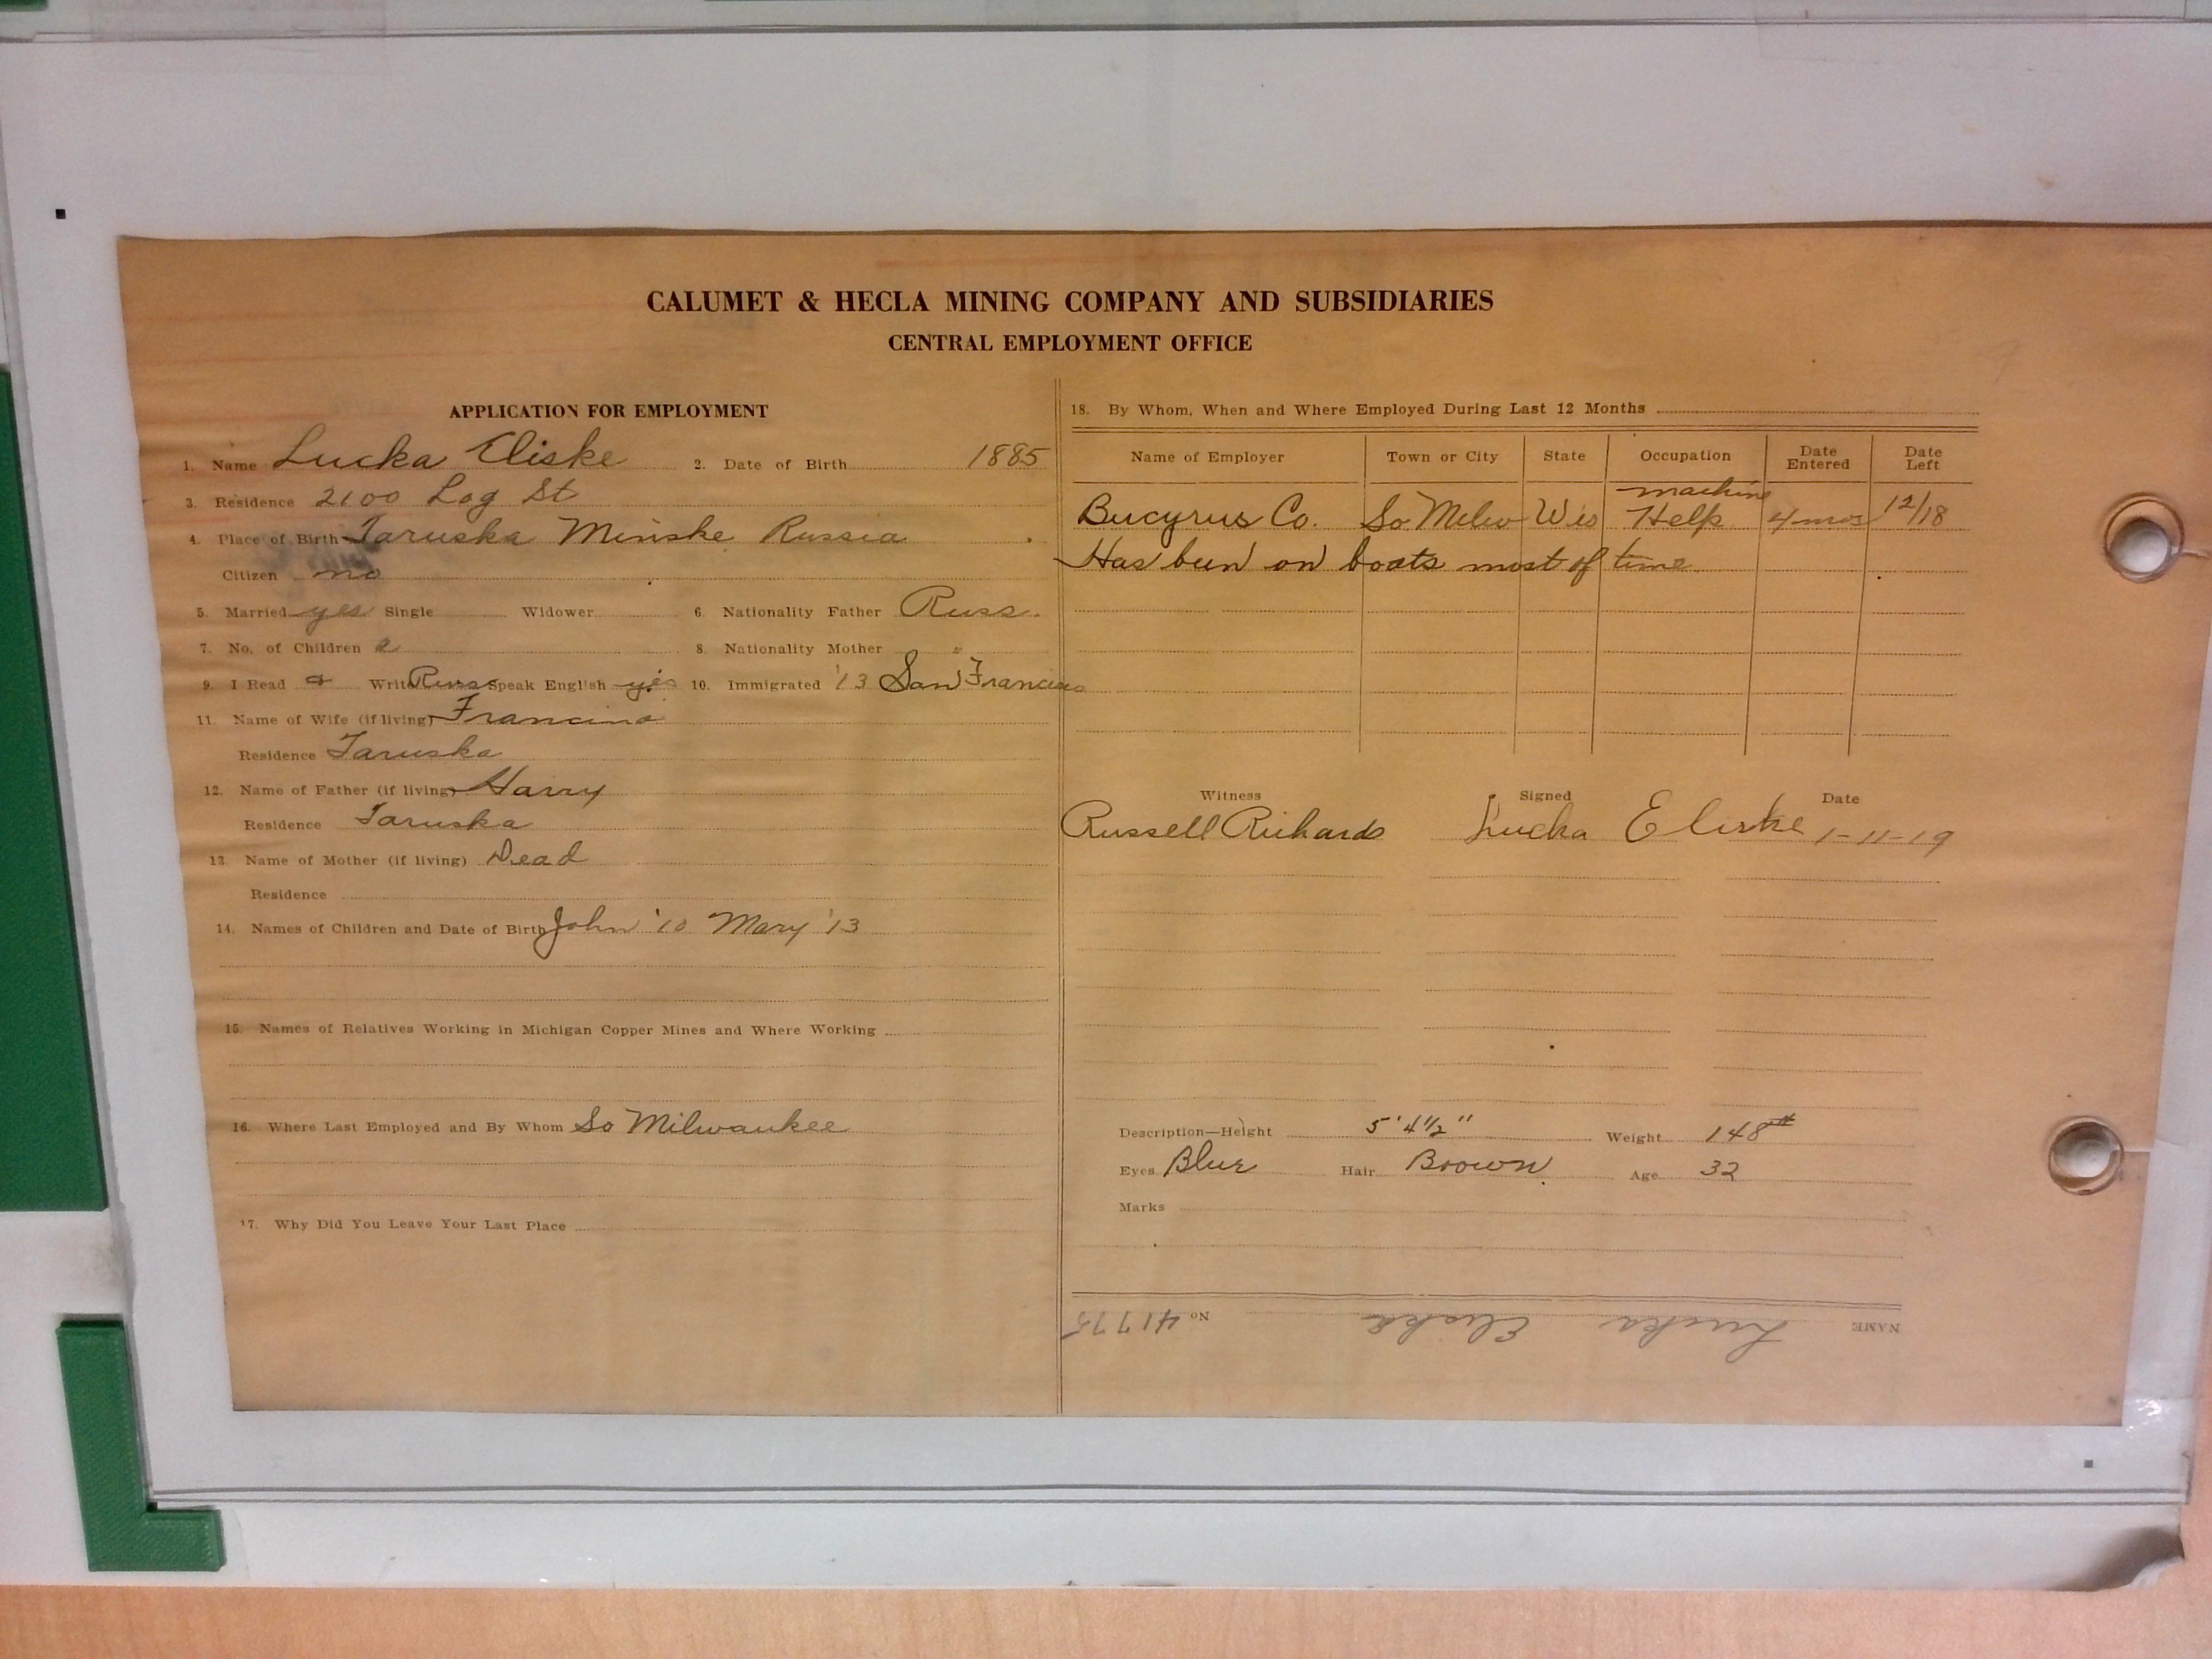 CALUMET & HECLA MINING COMPANY AND SUBSIDIARIES
CENTRAL EMPLOYMENT OFFICE
APPLICATION FOR EMPLOYMENT
1. Name Lucka Eliske 2. Date of Birth 1885
3. Residence 2100 Log St
4. Place of Birth Taruska Minske Russia
Citizen no
5. Married yes Single Widower 6. Nationality Father Russ.
7. No. of Children 2 8. Nationality Mother "
9. I Read & Write Russ Speak English yes 10. Immigrated '13 San Francisco
11. Name of Wife (if living) Francina
Residence Taruska
12. Name of Father (if living) Harry
Residence Taruska
13. Name of Mother (if living) Dead
Residence
14. Names of Children and Date of Birth John '10 Mary '13
15. Names of Relatives Working in Michigan Copper Mines and Where Working
16. Where Last Employed and By Whom So Milwaukee
17. Why Did You Leave Your Last Place
18. By Whom, When and Where Employed During Last 12 Months
Name of Employer Town or City State Occupation Date Entered Date Left
Bucyrus Co. So Milw Wis machine Help 4 mos 12/18
Has been on boats most of time
Witness Signed Date
Russell Richards Lucka Eliske 1-11-19
Description—Height 5' 4 1/2" Weight 148#
Eyes Blue Hair Brown Age 32
Marks
NAME Lucka Eliska No 41775